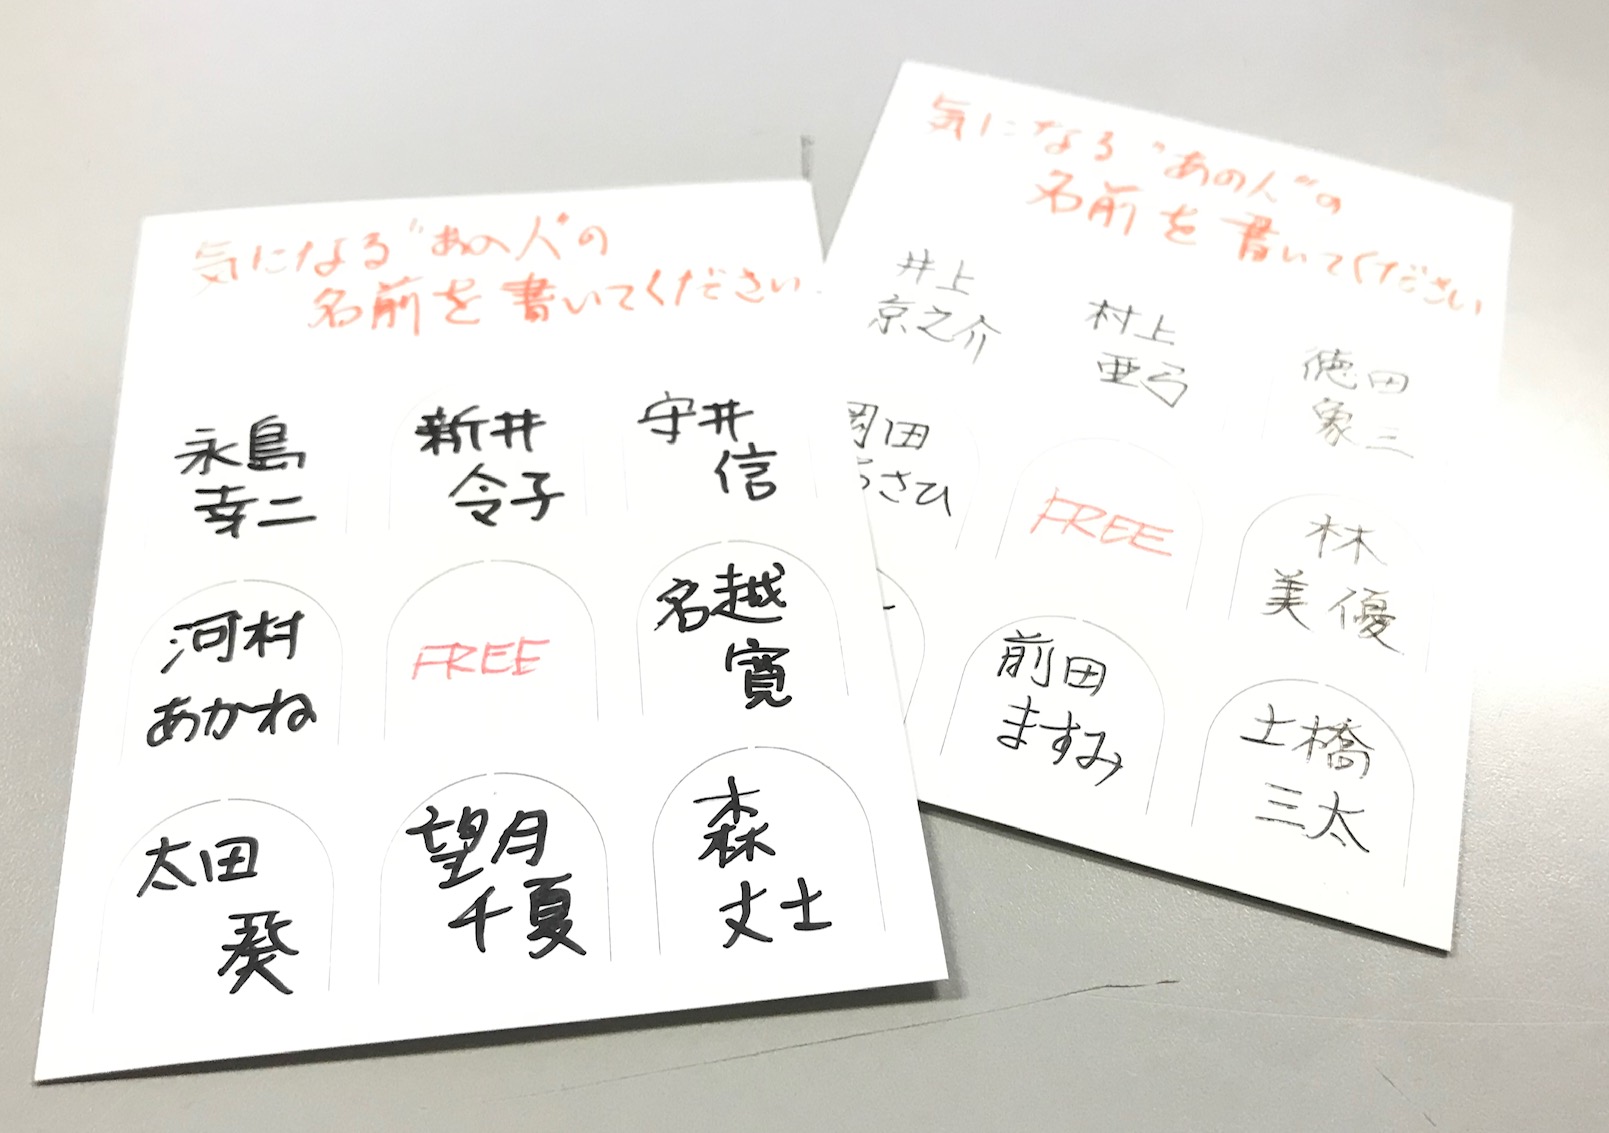 気になる"あの人"の
名前を書いてください
永島
幸二
新井
令子
守井
信
河村
あかね
FREE
名越
寛
太田
葵
望月
千夏
森
丈士
気になる"あの人"の
名前を書いてください
井上
京之介
村上
亜弓
徳田
象三
岡田
さひ
FREE
林
美優
前田
ますみ
土橋
三太